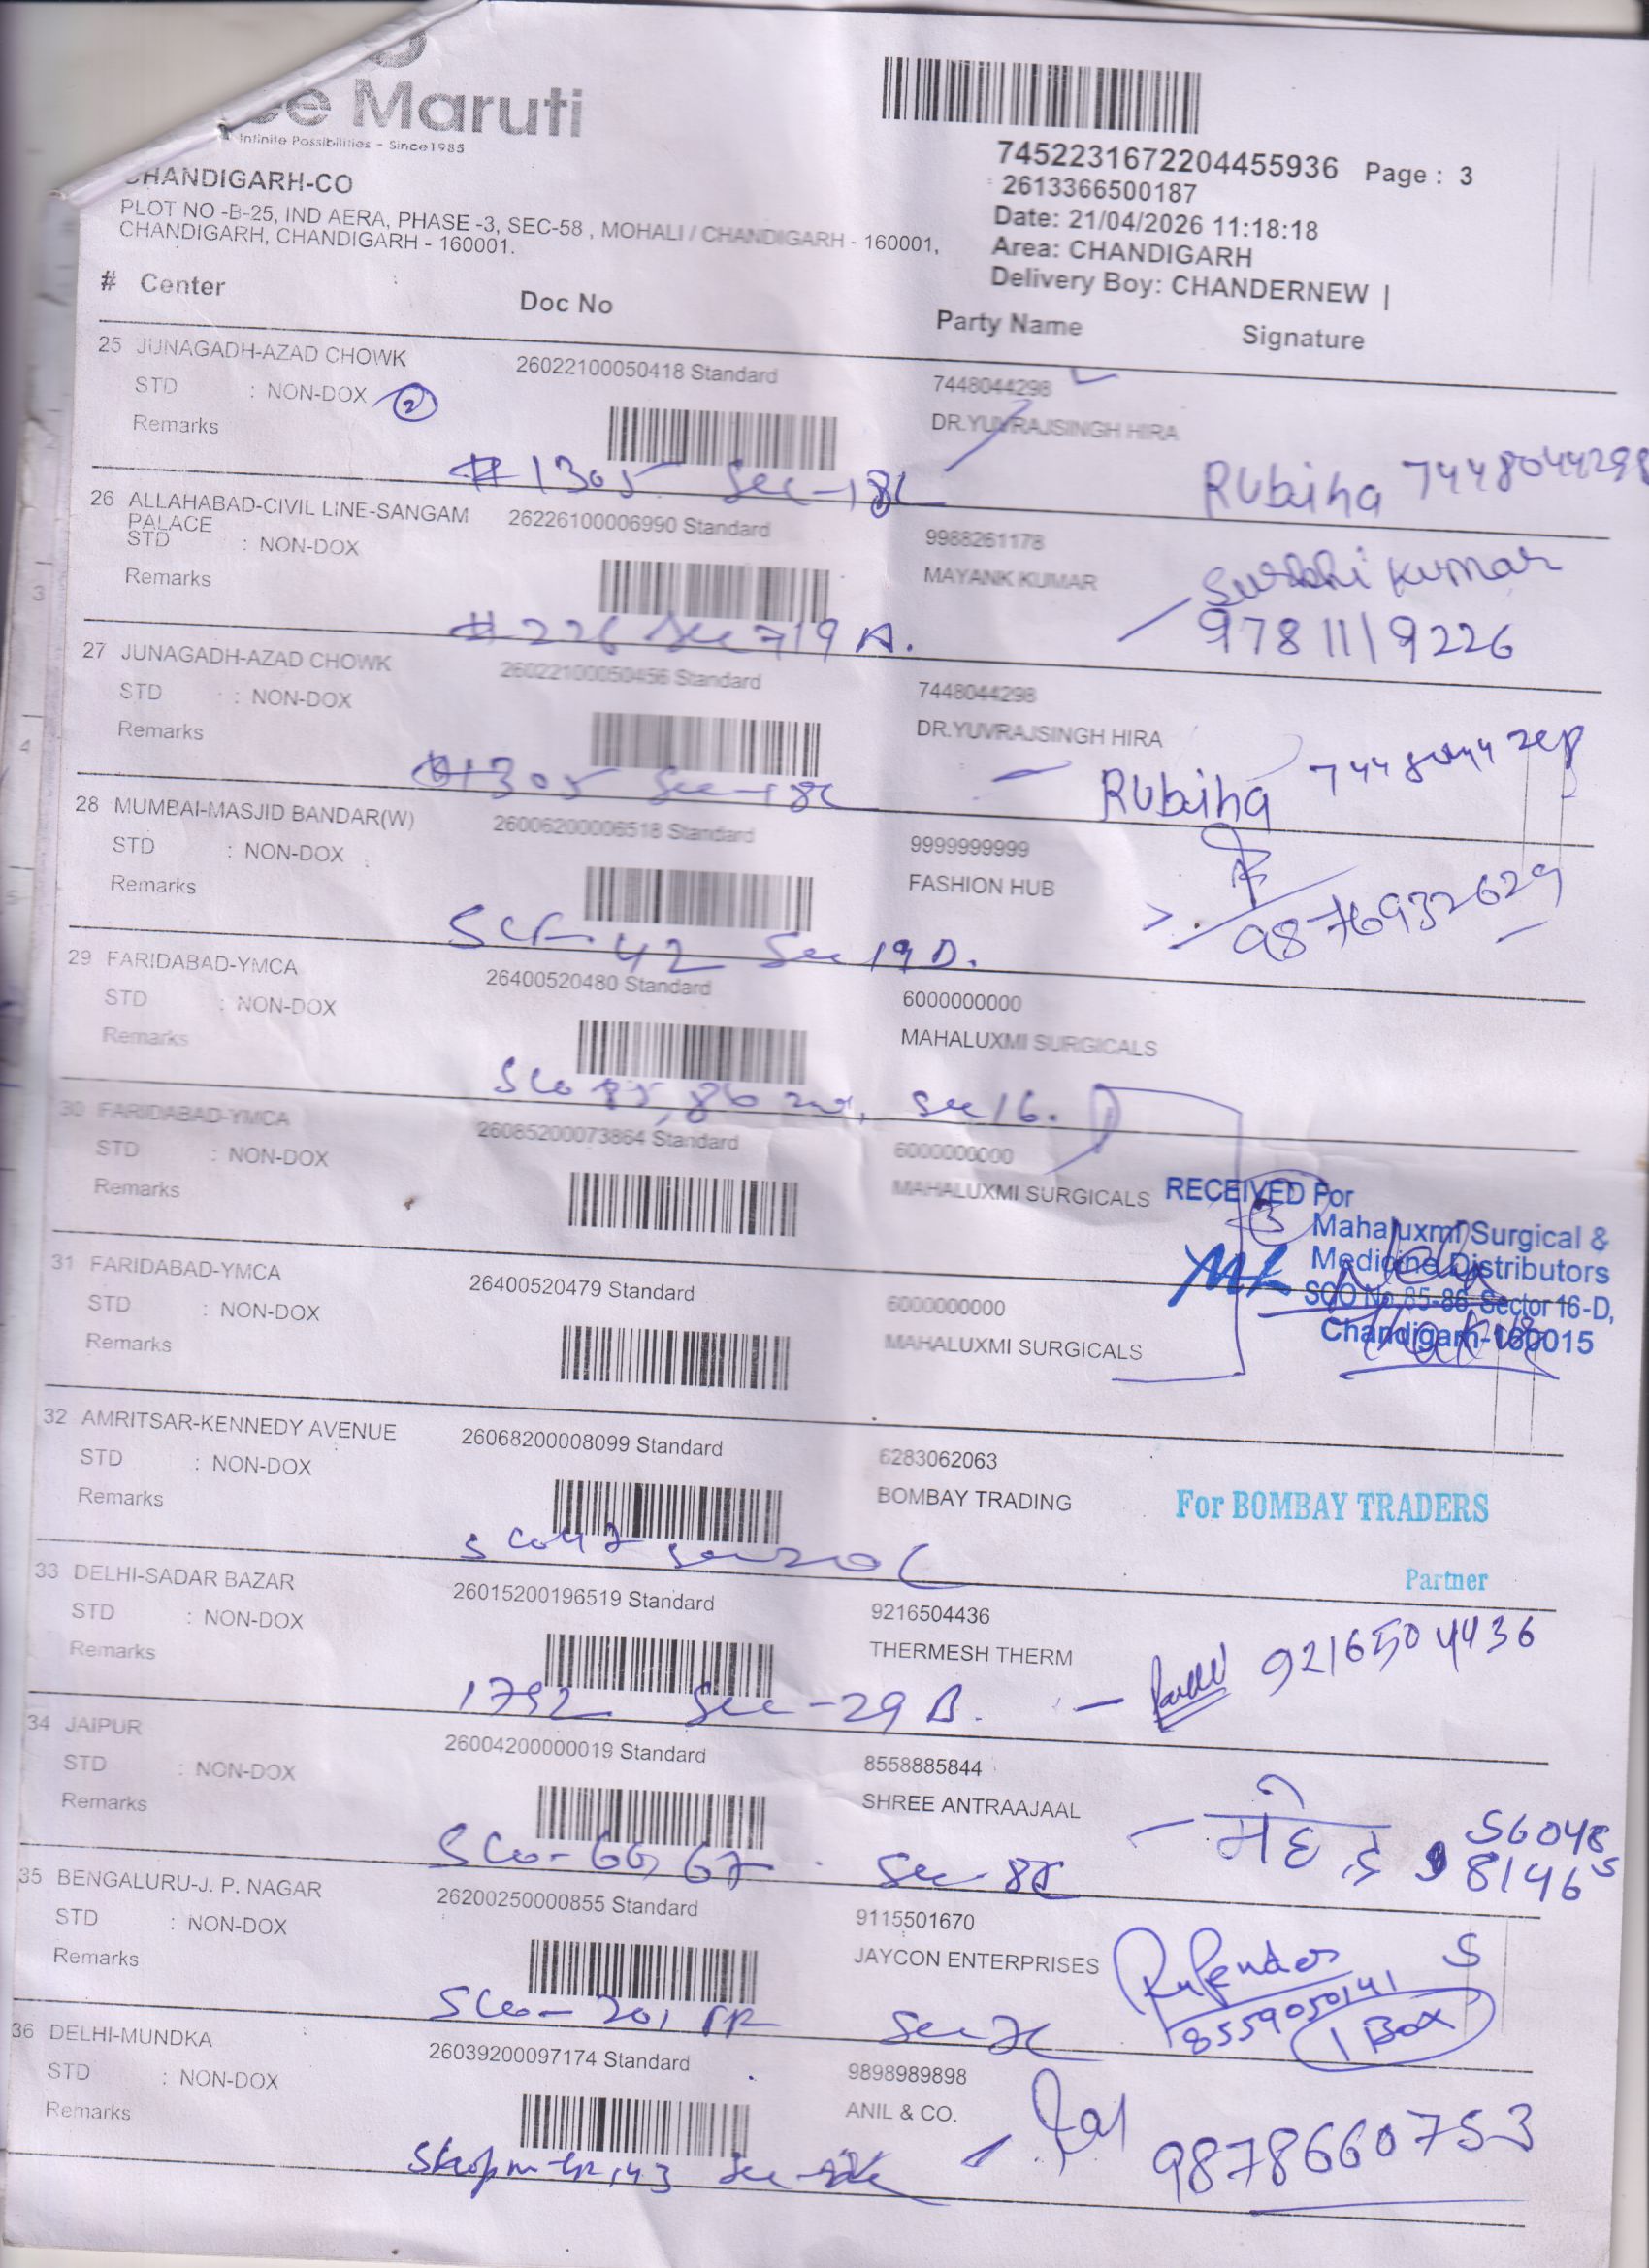 ee Maruti
Infinite Possibilities - Since1985
CHANDIGARH-CO
PLOT NO -B-25, IND AERA, PHASE -3, SEC-58 , MOHALI / CHANDIGARH - 160001,
CHANDIGARH, CHANDIGARH - 160001.
7452231672204455936 Page : 3
2613366500187
Date: 21/04/2026 11:18:18
Area: CHANDIGARH
Delivery Boy: CHANDERNEW |
# Center Doc No Party Name Signature
25 JUNAGADH-AZAD CHOWK 26022100050418 Standard 7448044298
STD : NON-DOX 2 DR.YUVRAJSINGH HIRA
Remarks
#1305 Sec-18C Rubina 7448044298
26 ALLAHABAD-CIVIL LINE-SANGAM PALACE 26226100006990 Standard 9988261178
STD : NON-DOX MAYANK KUMAR
Remarks
Kumar
9781119226
#226 Sec 19 A.
27 JUNAGADH-AZAD CHOWK 26022100050456 Standard 7448044298
STD : NON-DOX DR.YUVRAJSINGH HIRA
Remarks
#1305 Sec-18C Rubina
28 MUMBAI-MASJID BANDAR(W) 26006200006518 Standard 9999999999
STD : NON-DOX FASHION HUB
Remarks
9876932629
SCF-42 Sec 19 D.
29 FARIDABAD-YMCA 26400520480 Standard 6000000000
STD : NON-DOX MAHALUXMI SURGICALS
Remarks
Sco 85, 86 Sec 16.
30 FARIDABAD-YMCA 26085200073864 Standard 6000000000
STD : NON-DOX MAHALUXMI SURGICALS
Remarks
RECEIVED For
3
Mahaluxmi Surgical &
Medicine Distributors
SCO No.85-86, Sector 16-D,
Chandigarh-160015
31 FARIDABAD-YMCA 26400520479 Standard 6000000000
STD : NON-DOX MAHALUXMI SURGICALS
Remarks
32 AMRITSAR-KENNEDY AVENUE 26068200008099 Standard 6283062063
STD : NON-DOX BOMBAY TRADING
Remarks
For BOMBAY TRADERS
Partner
Sco 47 Sec 20 C
33 DELHI-SADAR BAZAR 26015200196519 Standard 9216504436
STD : NON-DOX THERMESH THERM
Remarks
9216504436
1792 Sec-29 B.
34 JAIPUR 26004200000019 Standard 8558885844
STD : NON-DOX SHREE ANTRAAJAAL
Remarks
56048
81465
Sco-66, 67 Sec-8C
35 BENGALURU-J. P. NAGAR 26200250000855 Standard 9115501670
STD : NON-DOX JAYCON ENTERPRISES
Remarks
Rupender S
8559050141
1 Box
Sco-201 Sec 7C
36 DELHI-MUNDKA 26039200097174 Standard 9898989898
STD : NON-DOX ANIL & CO.
Remarks
9878660753